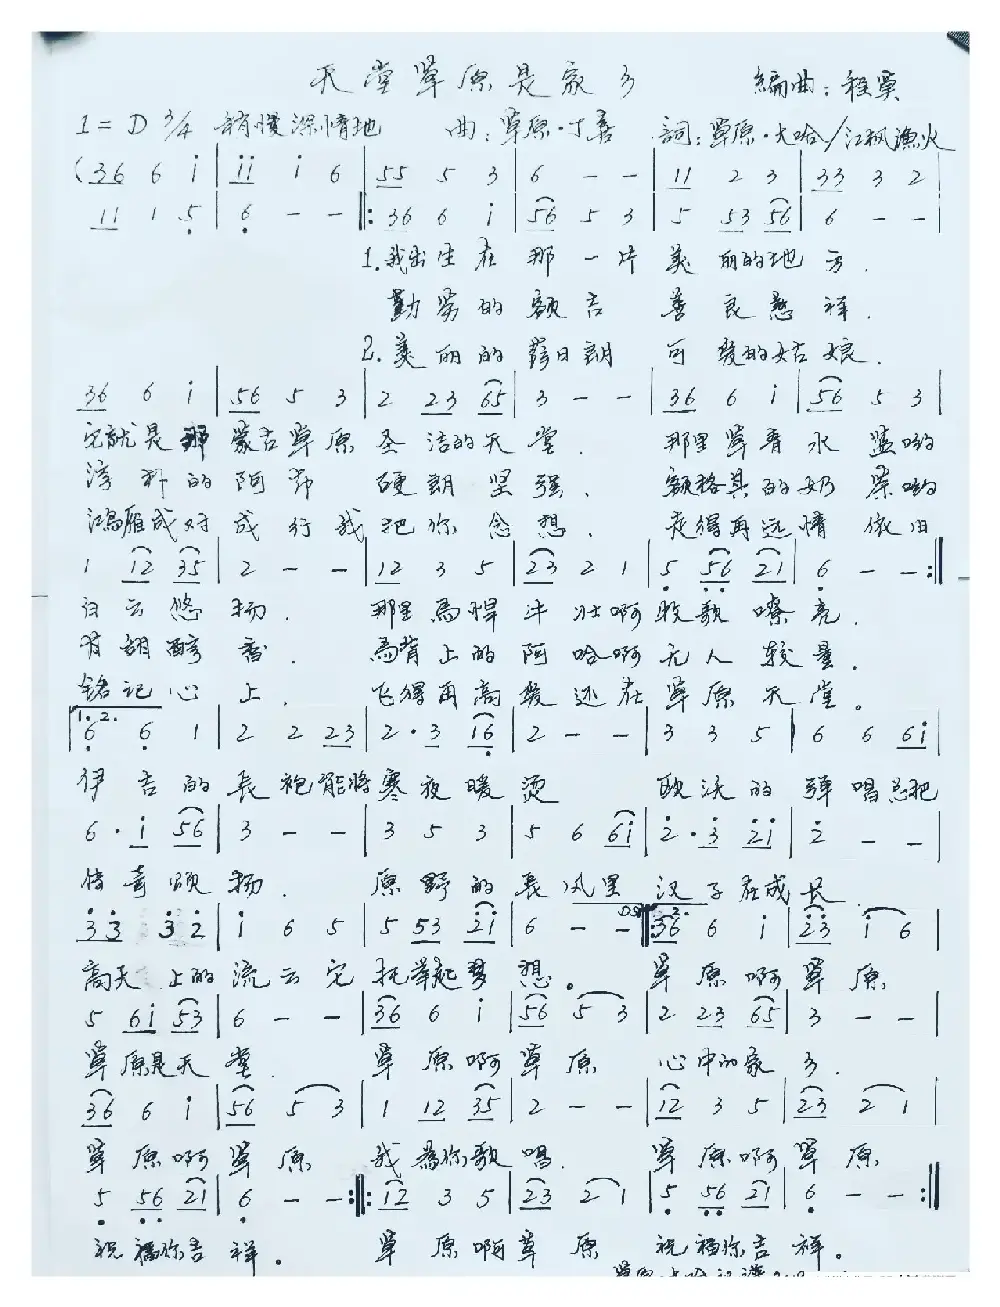 天堂草原是家乡
編曲：程奠
1=D 3/4 稍慢深情地 曲：草原·丁喜 詞：草原·大哈/江枫渔火
(36 6 i | ii i 6 | 55 5 3 | 6 - - | 11 2 3 | 33 3 2
11 1 5 | 6 - - |: 36 6 i | 56 5 3 | 5 53 56 | 6 - -
1.我出生在那一片美丽的地方.
勤劳的额吉善良慈祥.
2.美丽的薩日朗可爱的姑娘.
36 6 i | 56 5 3 | 2 23 65 | 3 - - | 36 6 i | 56 5 3 |
它就是那蒙古草原圣洁的天堂. 那里草青水蓝哟
淳朴的阿爷硬朗坚强. 额格其的奶茶哟
鸿雁成对成行我把你念想. 走得再远情依旧
1 12 35 | 2 - - | 12 3 5 | 23 2 1 | 5 56 21 | 6 - - :|
白云悠扬. 那里馬悍牛壮啊牧歌嘹亮.
有胡醇香. 馬背上的阿哈啊无人较量.
铭记心上. 飞得再高爱还在草原天堂。
1.2.
6 6 1 | 2 2 23 | 2· 3 16 | 2 - - | 3 3 5 | 6 6 6i |
伊吉的長袍能將寒夜暖烫 欧沃的弹唱总把
6· i 56 | 3 - - | 3 5 3 | 5 6 6i | 2· 3 2i | 2 - -
传奇颂扬. 原野的長风里汉子在成长
33 32 | i 6 5 | 5 53 2i | 6 - - :| 36 6 i | 23 i 6
D.S. 2.
高天上的流云它托举起梦想。 草原啊草原
5 6i 53 | 6 - - | 36 6 i | 56 5 3 | 2 23 65 | 3 - - |
草原是天堂. 草原啊草原 心中的家乡.
36 6 i | 56 5 3 | 1 12 35 | 2 - - | 12 3 5 | 23 2 1 |
草原啊草原 我為你歌唱. 草原啊草原
5 56 21 | 6 - - :|: 12 3 5 | 23 2 1 | 5 56 21 | 6 - - :|
祝福你吉祥。 草原啊草原 祝福你吉祥。